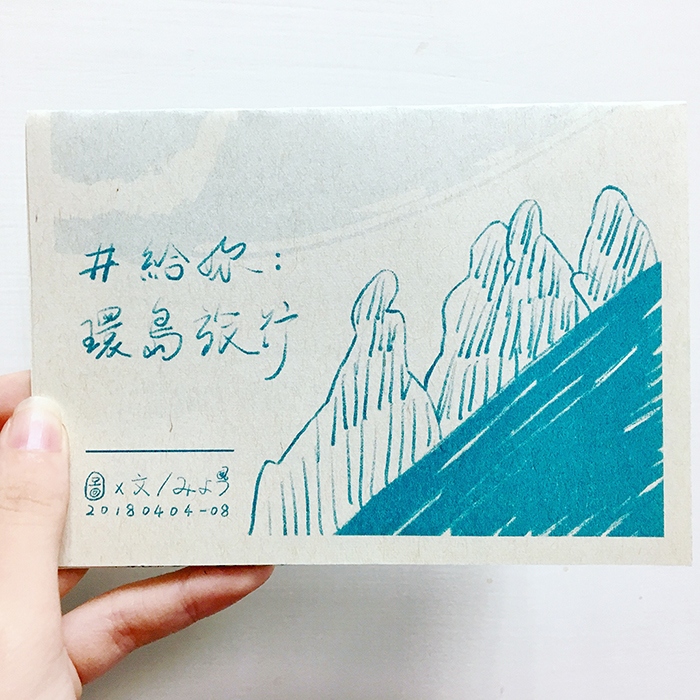 #給妳：
環島旅行
圖x文/みょ号
20180404-08